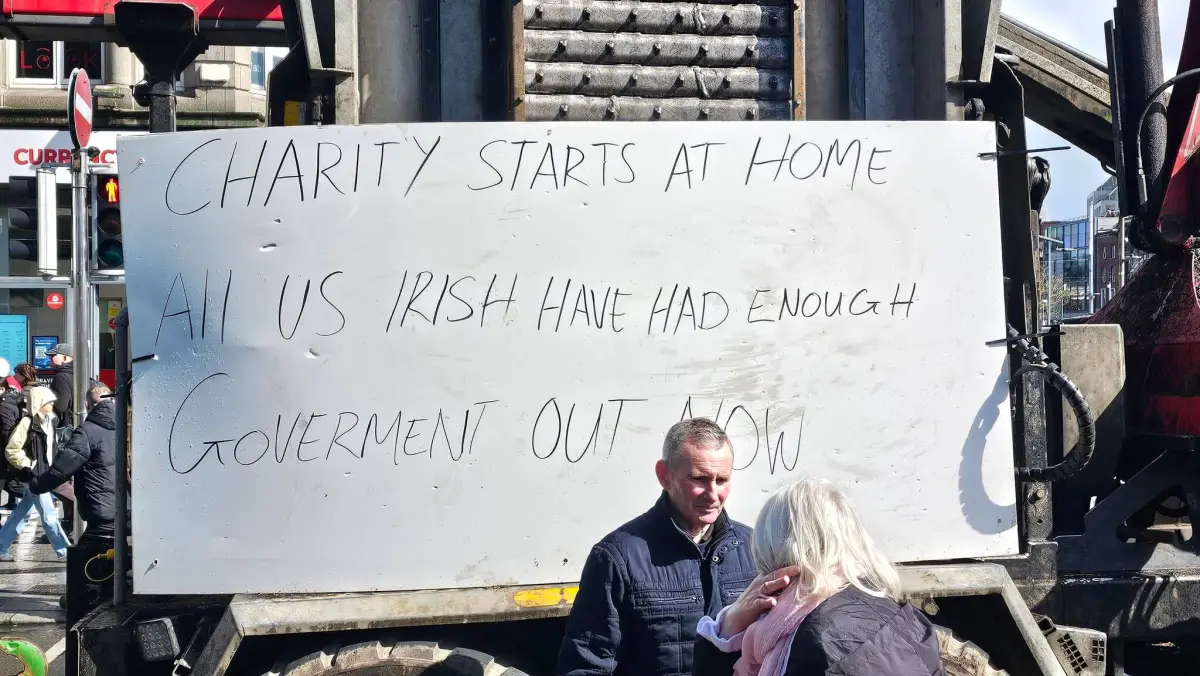 CHARITY STARTS AT HOME
All US IRISH HAVE HAD ENOUGH
GOVERMENT OUT NOW